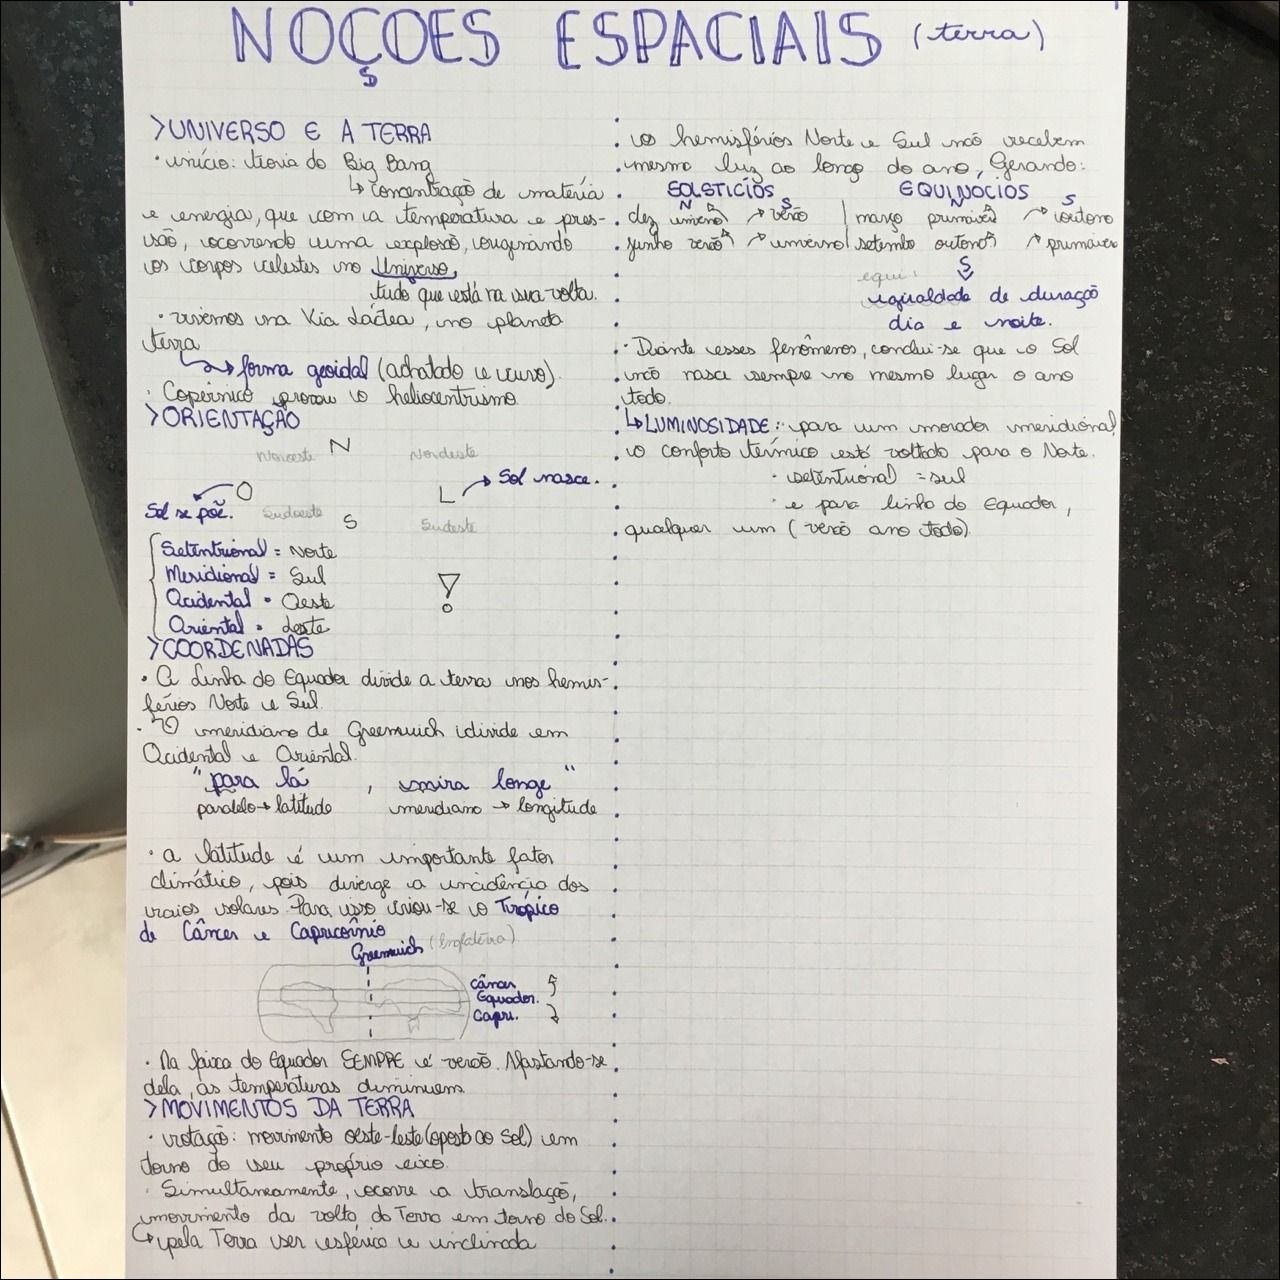 NOÇOES ESPACIAIS (terra)
>UNIVERSO E A TERRA
· início: teoria do Big Bang
↳ concentração de matéria
e energia, que com a temperatura e pres-
são, ocorrendo uma explosão, originando
os corpos celestes no Universo
tudo que está na sua volta.
· vivemos na Via Láctea, no planeta
terra
→ forma geoidal (achatado e curvo).
· Copérnico provou o heliocentrismo
>ORIENTAÇÃO
Noroeste N Nordeste
O L → Sol nasce.
Sol se põe. Sudoeste S Sudeste
Setentrional = Norte
Meridional = Sul
Ocidental = Oeste
Oriental = Leste
!
>COORDENADAS
· A Linha do Equador divide a terra nos hemis-
férios Norte e Sul.
· O meridiano de Greenwich divide em
Ocidental e Oriental.
"para lá , mira longe"
paralelo → latitude meridiano → longitude
· a latitude é um importante fator
climático, pois diverge a incidência dos
raios solares. Para isso criou-se o Trópico
de Câncer e Capricórnio
Greenwich (Inglaterra)
Câncer
Equador.
Capri.
· Na faixa do Equador SEMPRE é verão. Afastando-se
dela, as temperaturas diminuem
>MOVIMENTOS DA TERRA
· rotação: movimento oeste-leste (oposto ao Sol) em
torno do seu próprio eixo.
· Simultaneamente, ocorre a translação,
movimento da volta da Terra em torno do Sol.
↳ pela Terra ser esférica e inclinada
os hemisférios Norte e Sul não recebem
mesma luz ao longo do ano, Gerando:
SOLSTICÍOS EQUINÓCIOS
N S N S
dez inverno → verão | março primavera → outono
junho verão → inverno | setembro outono → primavera
equi: S
igualdade de duração
dia e noite.
· Diante esses fenômenos, conclui-se que o Sol
não nasce sempre no mesmo lugar o ano
todo.
↳ LUMINOSIDADE: para um morador meridional,
o conforto térmico está voltado para o Norte.
· setentrional = sul
· e para linha do Equador,
qualquer um (verão ano todo).